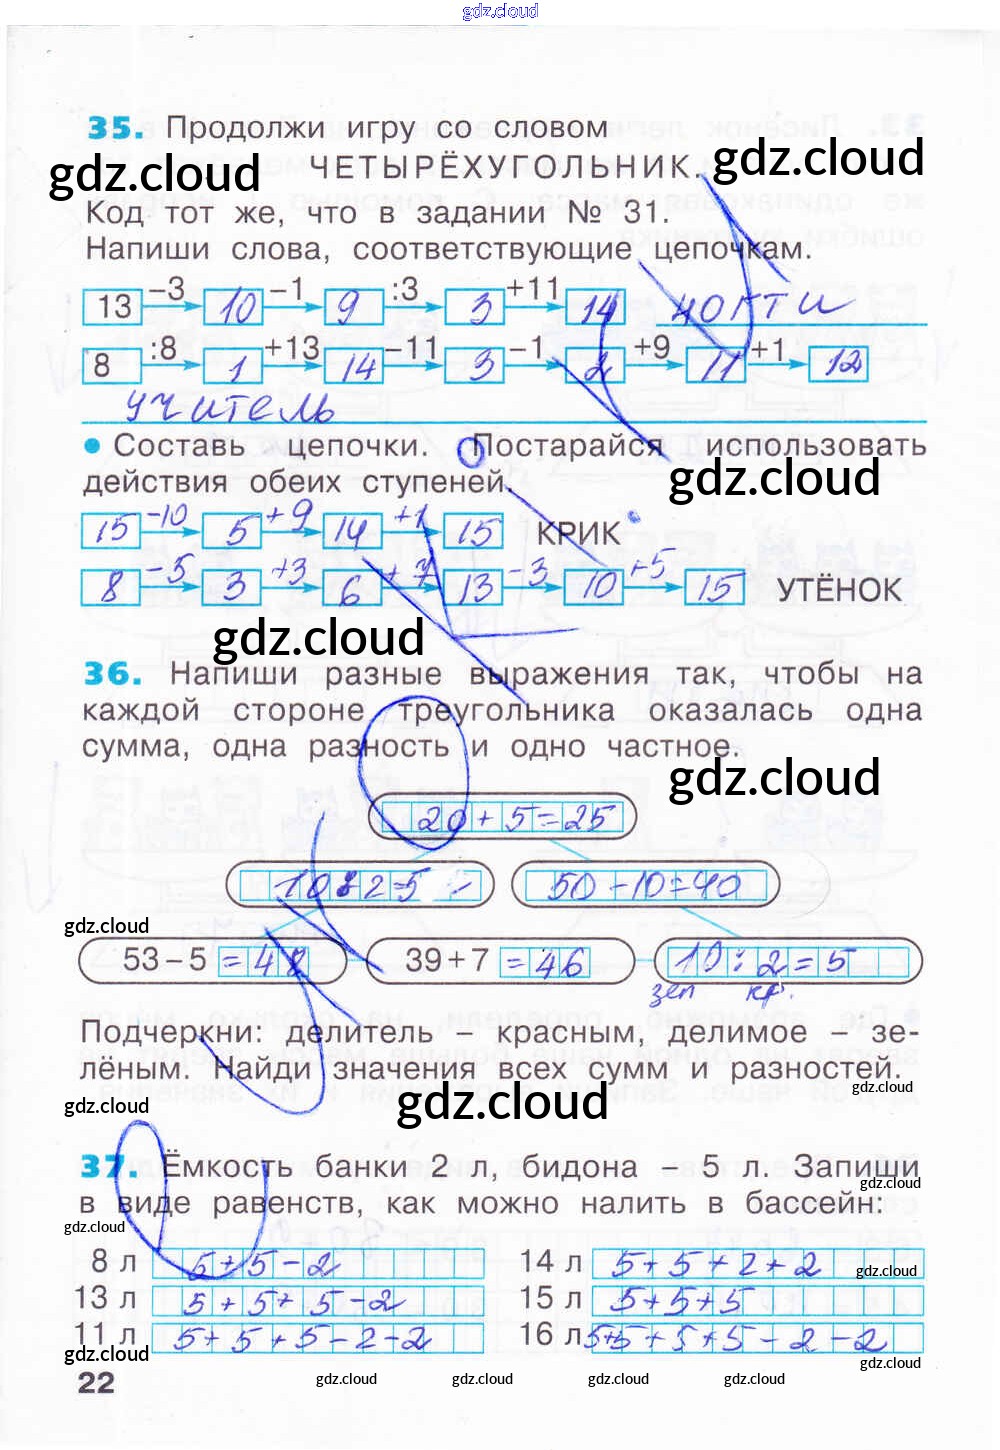 gdz.cloud
35. Продолжи игру со словом
ЧЕТЫРЁХУГОЛЬНИК.
gdz.cloud gdz.cloud
Код тот же, что в задании № 31.
Напиши слова, соответствующие цепочкам.
13 –3 10 –1 9 :3 3 +11 14 ногти
8 :8 1 +13 14 –11 3 –1 2 +9 11 +1 12
учитель
• Составь цепочки. Постарайся использовать
действия обеих ступеней.
gdz.cloud
15 -10 5 +9 14 +1 15 КРИК
8 -5 3 +3 6 +7 13 -3 10 +5 15 УТЁНОК
gdz.cloud
36. Напиши разные выражения так, чтобы на
каждой стороне треугольника оказалась одна
сумма, одна разность и одно частное.
gdz.cloud
20 + 5 = 25
10 : 2 = 5 50 - 10 = 40
gdz.cloud
53 – 5 = 48 39 + 7 = 46 10 : 2 = 5
зел кр.
Подчеркни: делитель – красным, делимое – зе-
лёным. Найди значения всех сумм и разностей.
gdz.cloud gdz.cloud gdz.cloud
37. Ёмкость банки 2 л, бидона – 5 л. Запиши
в виде равенств, как можно налить в бассейн:
gdz.cloud gdz.cloud
8 л 5 + 5 - 2 14 л 5 + 5 + 2 + 2
gdz.cloud
13 л 5 + 5 + 5 - 2 15 л 5 + 5 + 5
11 л 5 + 5 + 5 - 2 - 2 16 л 5+5 + 5 + 5 - 2 - 2
gdz.cloud gdz.cloud
22 gdz.cloud gdz.cloud gdz.cloud gdz.cloud